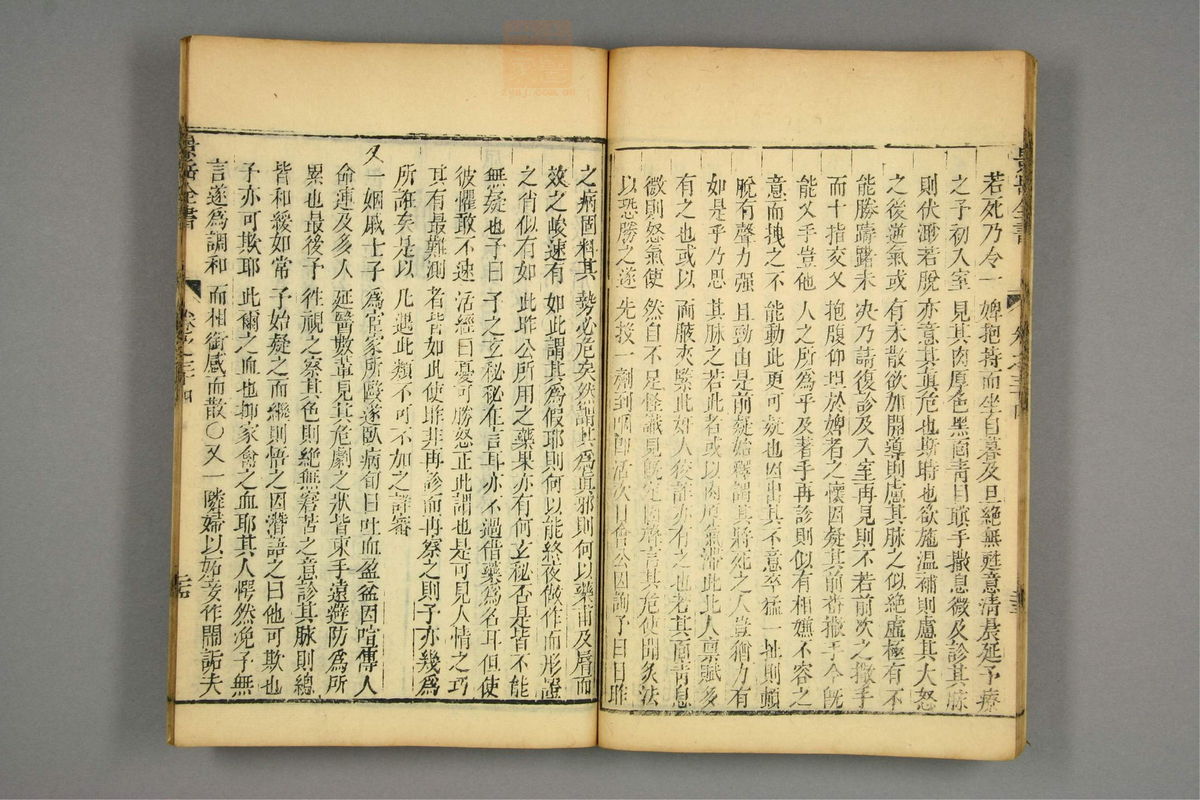 若死乃令一婢抱持而坐自暮及旦絕無甦意清晨延予療
之予初入室見其肉厚色黑面青目瞑手撒息微及診其脉
則伏渺若脫亦意其真危也斯時也欲施溫補則慮其大怒
之後逆氣或有未散欲加開導則慮其脉之似絕虛極有不
能勝躊躇未決乃請復診及入室再見則不若前次之撒手
而十指交叉抱腹仰坦於婢者之懷因疑其前番撒手今旣
能叉手豈他人之所為乎及著手再診則似有相嫌不容之
意而拽之不能動此更可疑也因出其不意卒猛一扯則頓
脫有聲力强且勁由是前疑始釋謂其將死之人豈猶力有
如是乎乃思其脉之若此者或以肉厚氣滯此北人禀賦多
有之也或以兩腋夾緊此奸人狡詐亦有之也若其面青息
微則怒氣使然自不足怪識見旣定因聲言其危使聞灸法
以恐勝之遂先投一劑到咽即活次日會公因詢予曰日昨
之病固料其勢必危矣然謂其為真邪則何以藥甫及脣而
效之峻速有如此謂其為假耶則何以能終夜做作而形證
之肖似有如此昨公所用之藥果亦有何玄秘否是皆不能
無疑也予曰予之玄秘秘在言耳亦不過借藥為名耳但使
彼懼敢不速活經曰憂可勝怒正此謂也是可見人情之巧
其有最難測者皆如此使昨非再診而再察之則予亦幾為
所誑矣是以凡遇此類不可不加之詳審
又一姻戚士子為宦家所毆遂臥病旬日吐血盈盆因喧傳人
命連及多人延醫數輩見其危劇之狀皆束手遠避防為所
累也最後予往視之察其色則絕無窘苦之意診其脉則總
皆和緩如常予始疑之而繼則悟之因潛語之曰他可欺也
子亦可欺耶此爾之血也抑家禽之血耶其人愕然浼予無
言遂為調和而相銜感而散〇又一鄰婦以妬妾作鬧詬夫
景岳全書
卷之三十四
景岳全書
卷之三十四